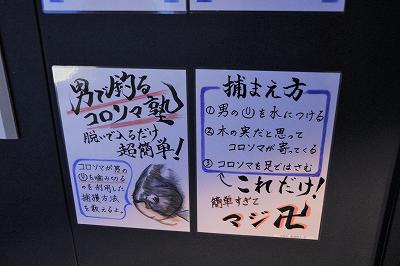 男で釣る
コロソマ塾
脱いで入るだけ
超簡単!
コロソマが男の
を噛み切る
のを利用した
捕獲方法
を教えるよ。
捕まえ方
①男の を水につける
②木の実だと思って
コロソマが寄ってくる
③コロソマを足ではさむ
これだけ!
簡単すぎて
マジ卍